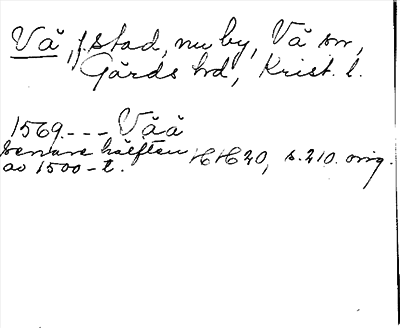 Vä, f. stad, nu by, Vä sn,
Gärds hd, Krist. l.
1569 - - - Vää
senare hälften HH 20, s. 210. orig.
av 1500-t.